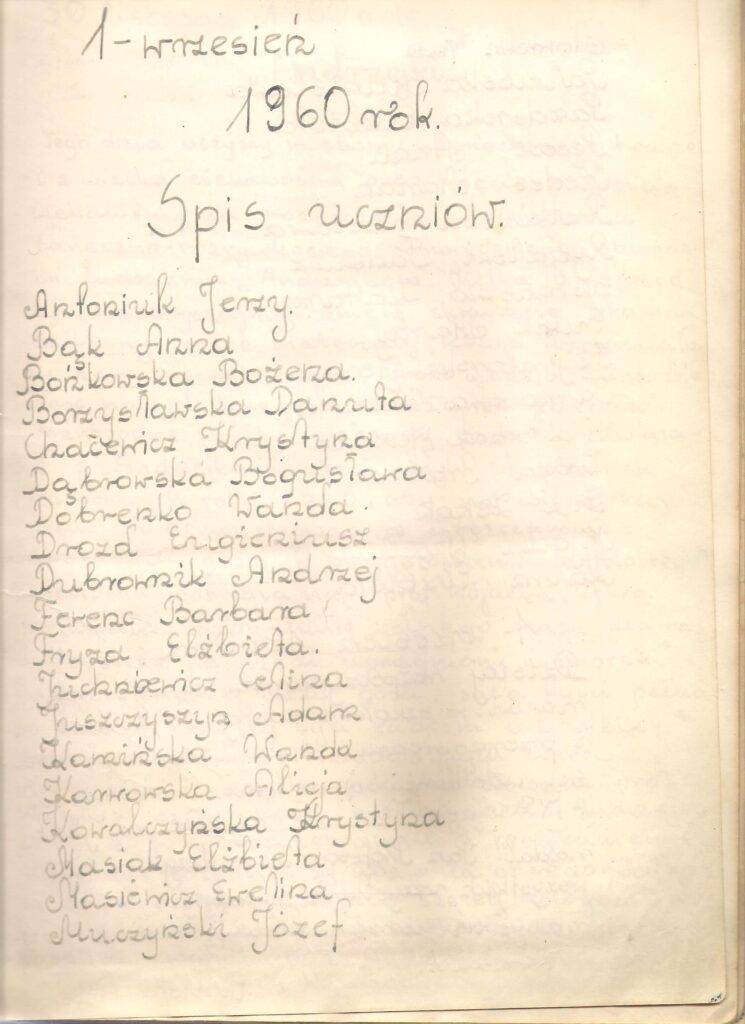 1-wrzesień
1960 rok.
Spis uczniów.
Antoniuk Jerzy.
Bąk Anna
Bońkowska Bożena.
Borzysławska Danuta
Chacewicz Krystyna
Dąbrowska Bogusława
Dobrenko Wanda.
Drozd Eugieniusz
Dubrownik Andrzej
Ferenc Barbara
Fryzd Elżbieta.
Celina
Juszczyszyn Adam
Kamińska Wanda
Karwowska Alicja
Kowalczyńska Krystyna
Masiak Elżbieta
Masiewicz Ewelina
Muczyński Józef